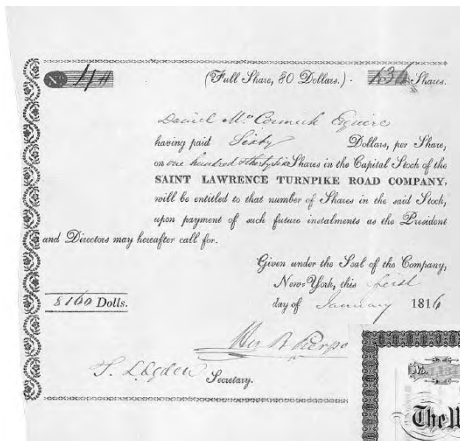 No. 44 (Full Share, 80 Dollars.) - 136 Shares.
Daniel McCormick Esquire
having paid Sixty Dollars, per Share,
on one hundred & thirty six Shares in the Capital Stock of the
SAINT LAWRENCE TURNPIKE ROAD COMPANY,
will be entitled to that number of Shares in the said Stock,
upon payment of such future instalments as the President
and Directors may hereafter call for.
Given under the Seal of the Company,
New-York, this first
8160 Dolls. day of January 1816
Secretary.